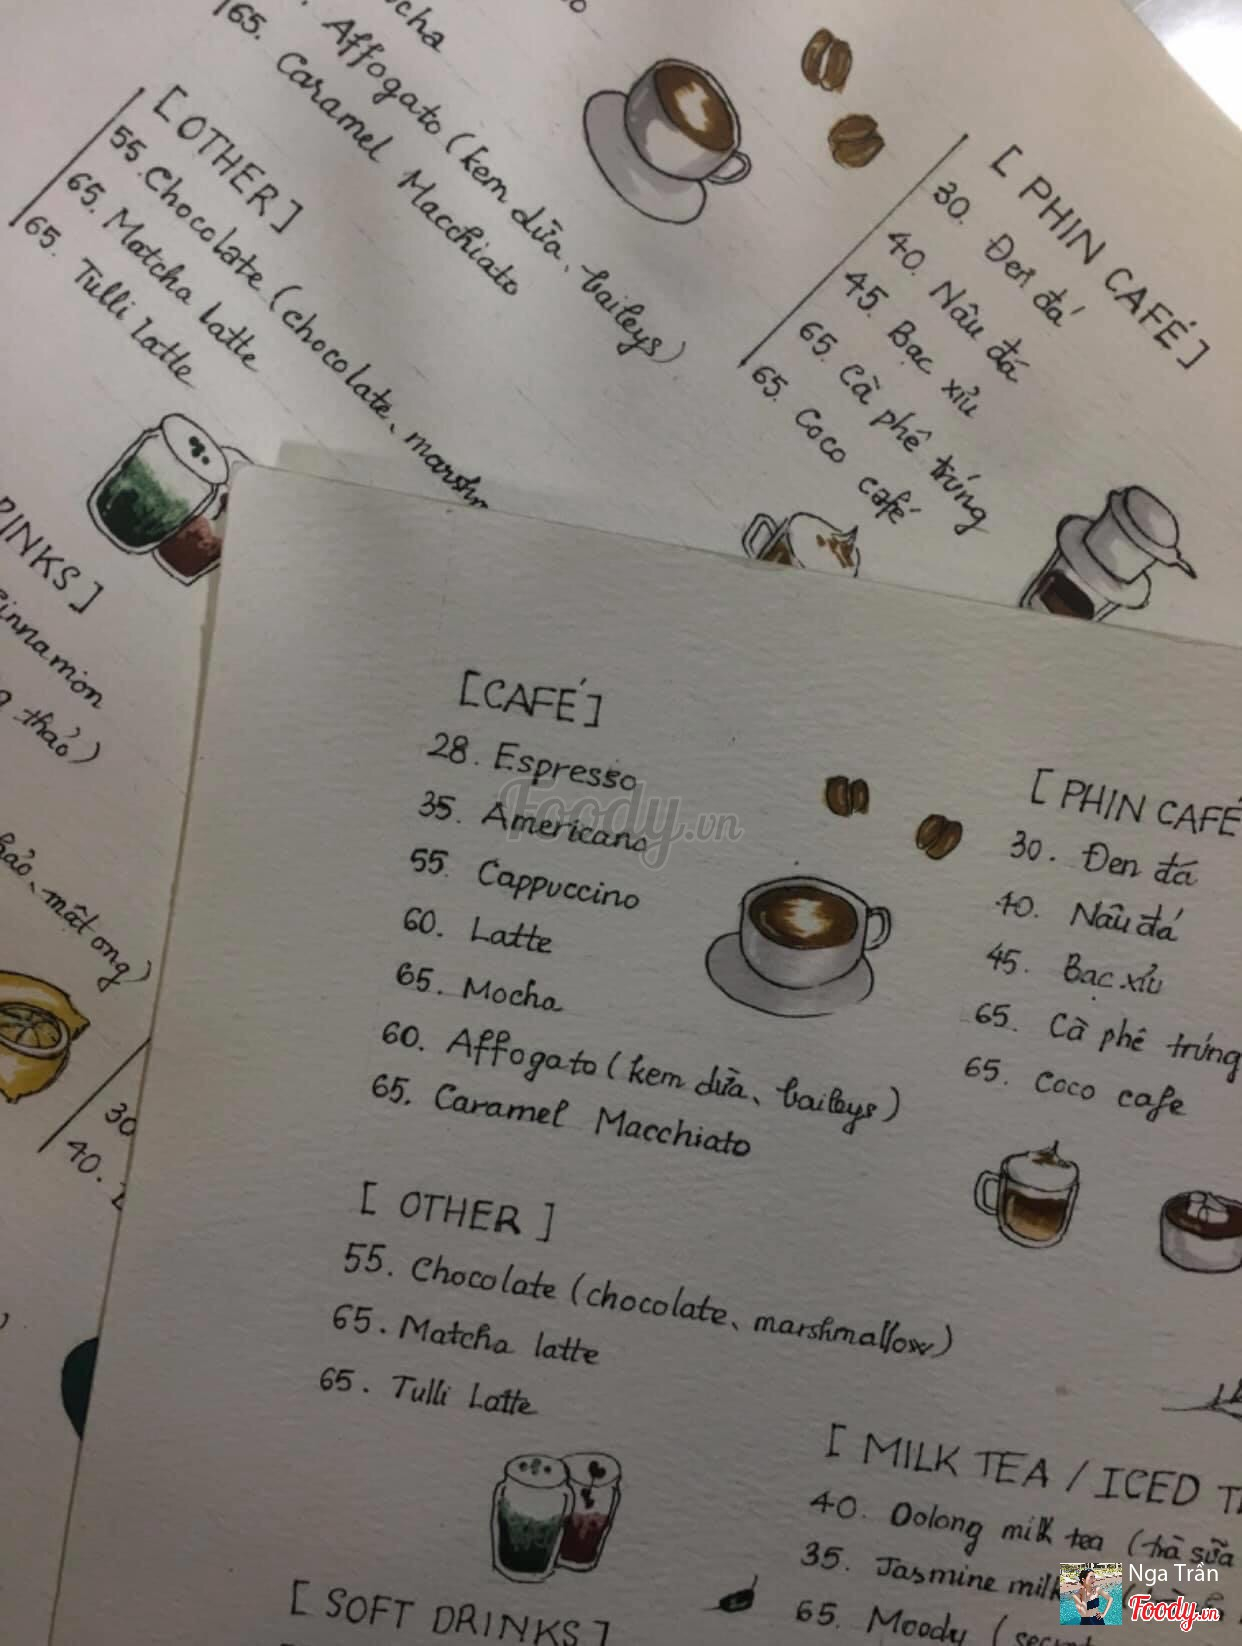 ocha
Affogato (kem dừa, baileys)
65. Caramel Macchiato
[OTHER]
55. Chocolate (chocolate, marshm
65. Matcha latte
65. Tulli latte
[ PHIN CAFÉ ]
30. Đen đá
40. Nâu đá
45. Bạc xỉu
65. Cà phê trứng
65. Coco café
RINKS ]
cinnamon
thảo)
hảo, mật ong)
30
40.
[CAFÉ]
28. Espresso
35. Americano
55. Cappuccino
60. Latte
65. Mocha
60. Affogato (kem dừa, baileys)
65. Caramel Macchiato
[ PHIN CAFÉ
30. Đen đá
40. Nâu đá
45. Bạc xỉu
65. Cà phê trứng
65. Coco cafe
[ OTHER ]
55. Chocolate (chocolate, marshmallow)
65. Matcha latte
65. Tulli Latte
[ MILK TEA / ICED T
40. Oolong milk tea (trà sữa
35. Jasmine milk
65. Moody (secret
[ SOFT DRINKS ]
Foody.vn
Nga Trần
Foody.vn